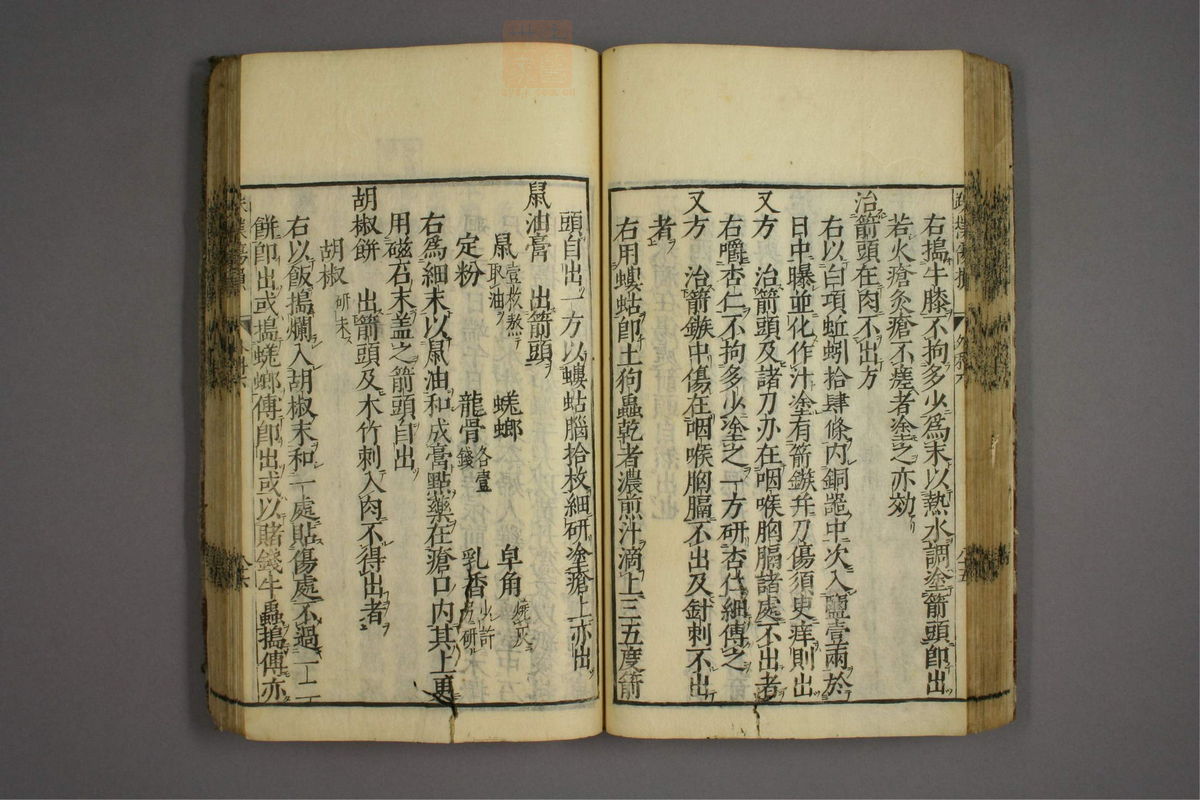 右搗牛膝不拘多少為末以熱水調塗箭頭即出
若火瘡灸瘡不瘥者塗之亦効
治箭頭在肉不出方
右以白項蚯蚓拾肆條內銅器中次入鹽壹兩於
日中曝並化作汁塗有箭鏃并刀傷須臾痒則出
又方　治箭頭及諸刀刃在咽喉胸膈諸處不出者
右嚼杏仁不拘多少塗之一方研杏仁細傅之
又方　治箭鏃中傷在咽喉胸膈不出及針刺不出
者
右用螻蛄即土狗蟲乾者濃煎汁滴上三五度箭
頭自出一方以螻蛄腦拾枚細研塗瘡上亦出
鼠油膏　出箭頭
鼠壹枚熬取油　蜣蜋　皁角燒灰
定粉　龍骨各壹錢　乳香少許研
右為細末以鼠油和成膏點藥在瘡口內其上更
用磁石末盖之箭頭自出
胡椒餅　出箭頭及木竹刺入肉不得出者
胡椒研末
右以飯搗爛入胡椒末和一處貼傷處不過一上
餅即出或搗蜣蜋傅即出或以賭錢牛蟲搗傅亦